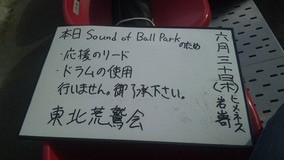 本日 Sound of Ball Parkのため
・応援のリード
・ドラムの使用
行いません。御了承下さい。
東北荒鷲会
六月三十日(木)
ヒメネス
岩嵜